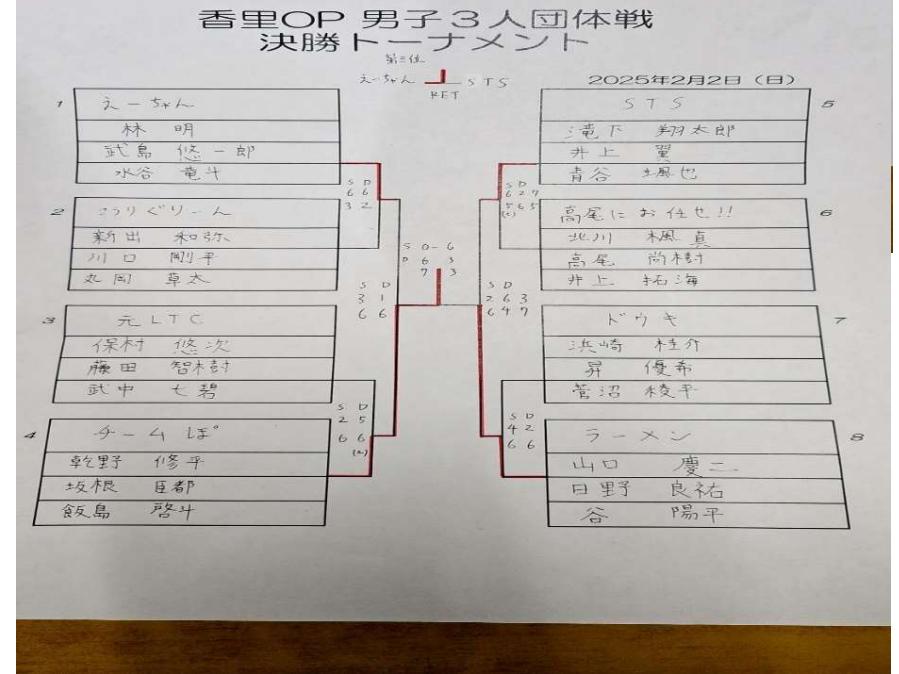 香里OP 男子3人団体戦
決勝トーナメント
第三位
えーちゃん STS
RET
2025年2月2日（日）
1 えーちゃん
林 明
武島 悠一郎
水谷 竜斗
S D
6 6
3 2
2 こうりぐりーん
新出 和弥
川口 剛平
丸岡 草太
S D
3 1
6 6
3 元LTC
保村 悠次
藤田 智樹
武中 七碧
S D
2 5
6 6
4 チームぽ
乾野 修平
坂根 臣都
飯島 啓斗
S 0-6
D 6 3
7 3
5 STS
滝下 翔太郎
井上 翼
青谷 颯也
S D
6 2 7
5 6 5
6 高尾にお任せ!!
北川 楓真
高尾 尚樹
井上 拓海
S D
2 6 3
6 4 7
7 ドウキ
浜崎 桂介
昇 優希
菅沼 稜平
S D
4 2
6 6
8 ラーメン
山口 慶二
日野 良祐
谷 陽平